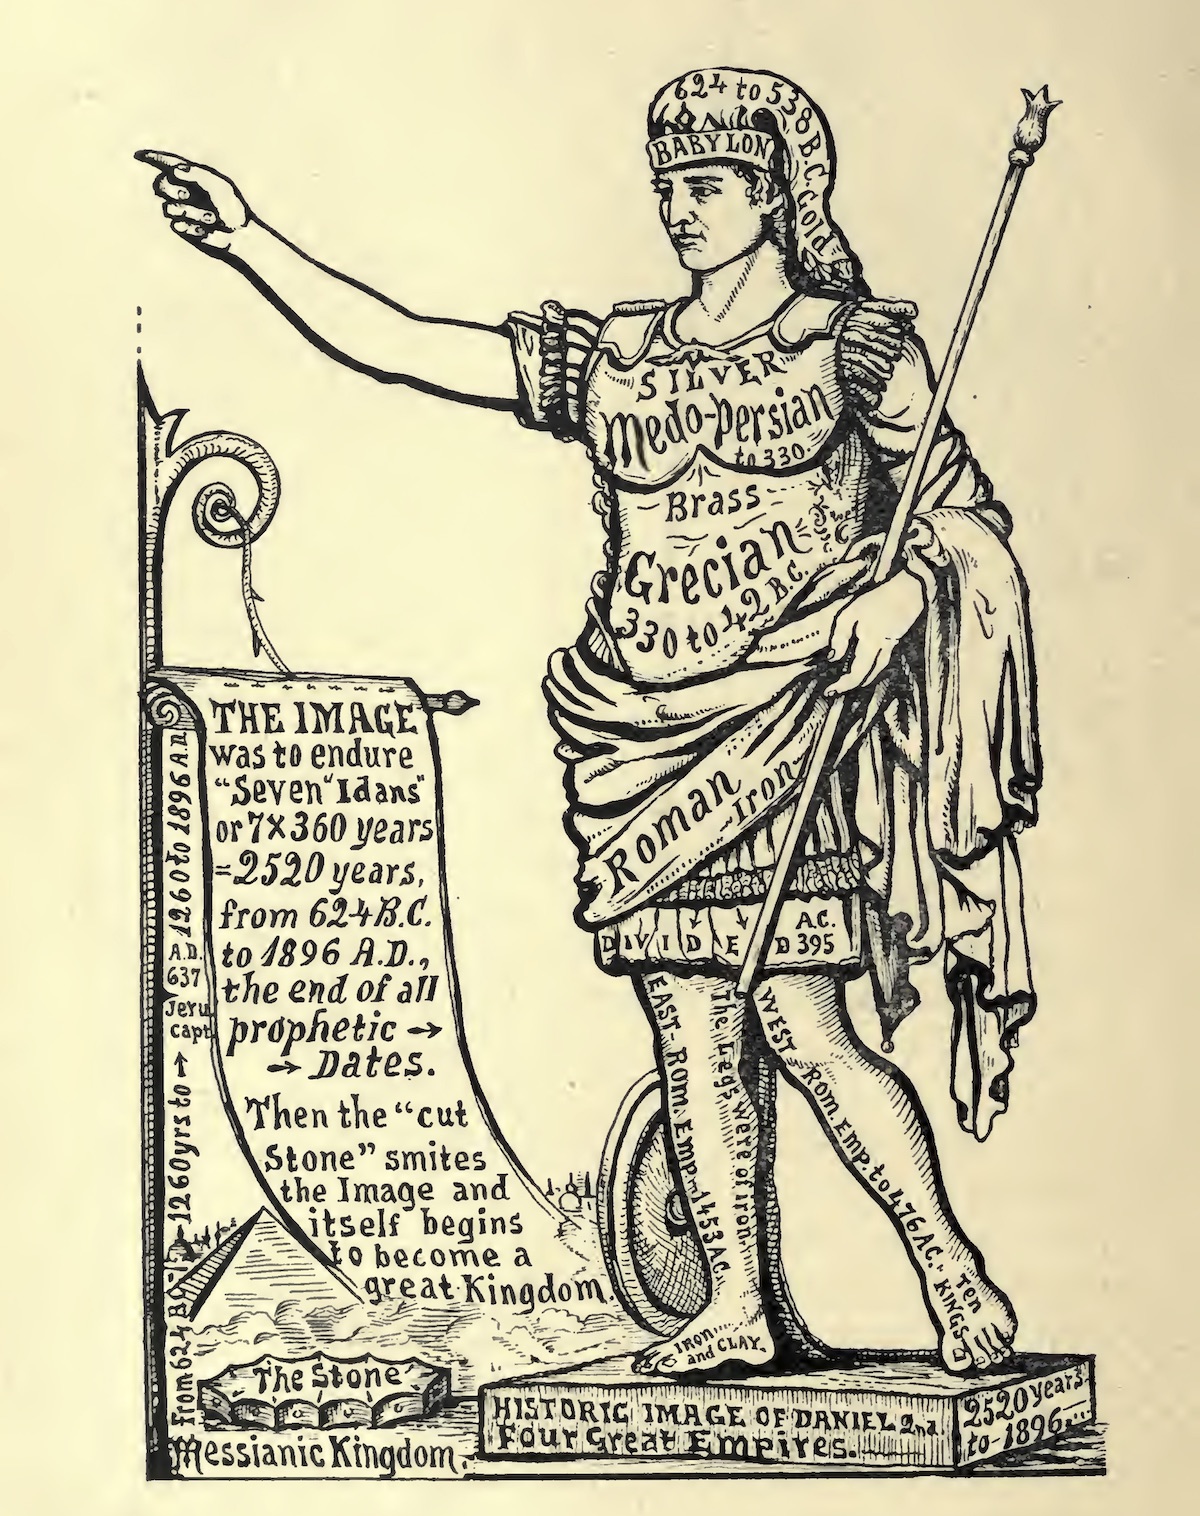 624 to 538 B.C. Gold
BABYLON
SILVER
Medo-Persian
to 330.
Brass
Grecian
330 to 42 B.C.
Roman
Iron
DIVIDED A.C. 395
EAST-ROM. EMP. 1453 A.C.
The Legs were of iron.
WEST ROM. EMP. to 476 A.C.
TEN
KINGS
IRON
and CLAY.
THE IMAGE
was to endure
"Seven "Idans"
or 7x360 years
=2520 years,
from 624 B.C.
to 1896 A.D.,
the end of all
prophetic →
→ Dates.
Then the "cut
Stone" smites
the Image and
itself begins
to become a
great Kingdom.
From 624 B.C. 1260 yrs to →
Jeru.
capt
A.D.
637
1260 to 1896 A.D.
The Stone
Messianic Kingdom.
HISTORIC IMAGE OF DANIEL 2nd
Four Great Empires.
2520 years
to 1896